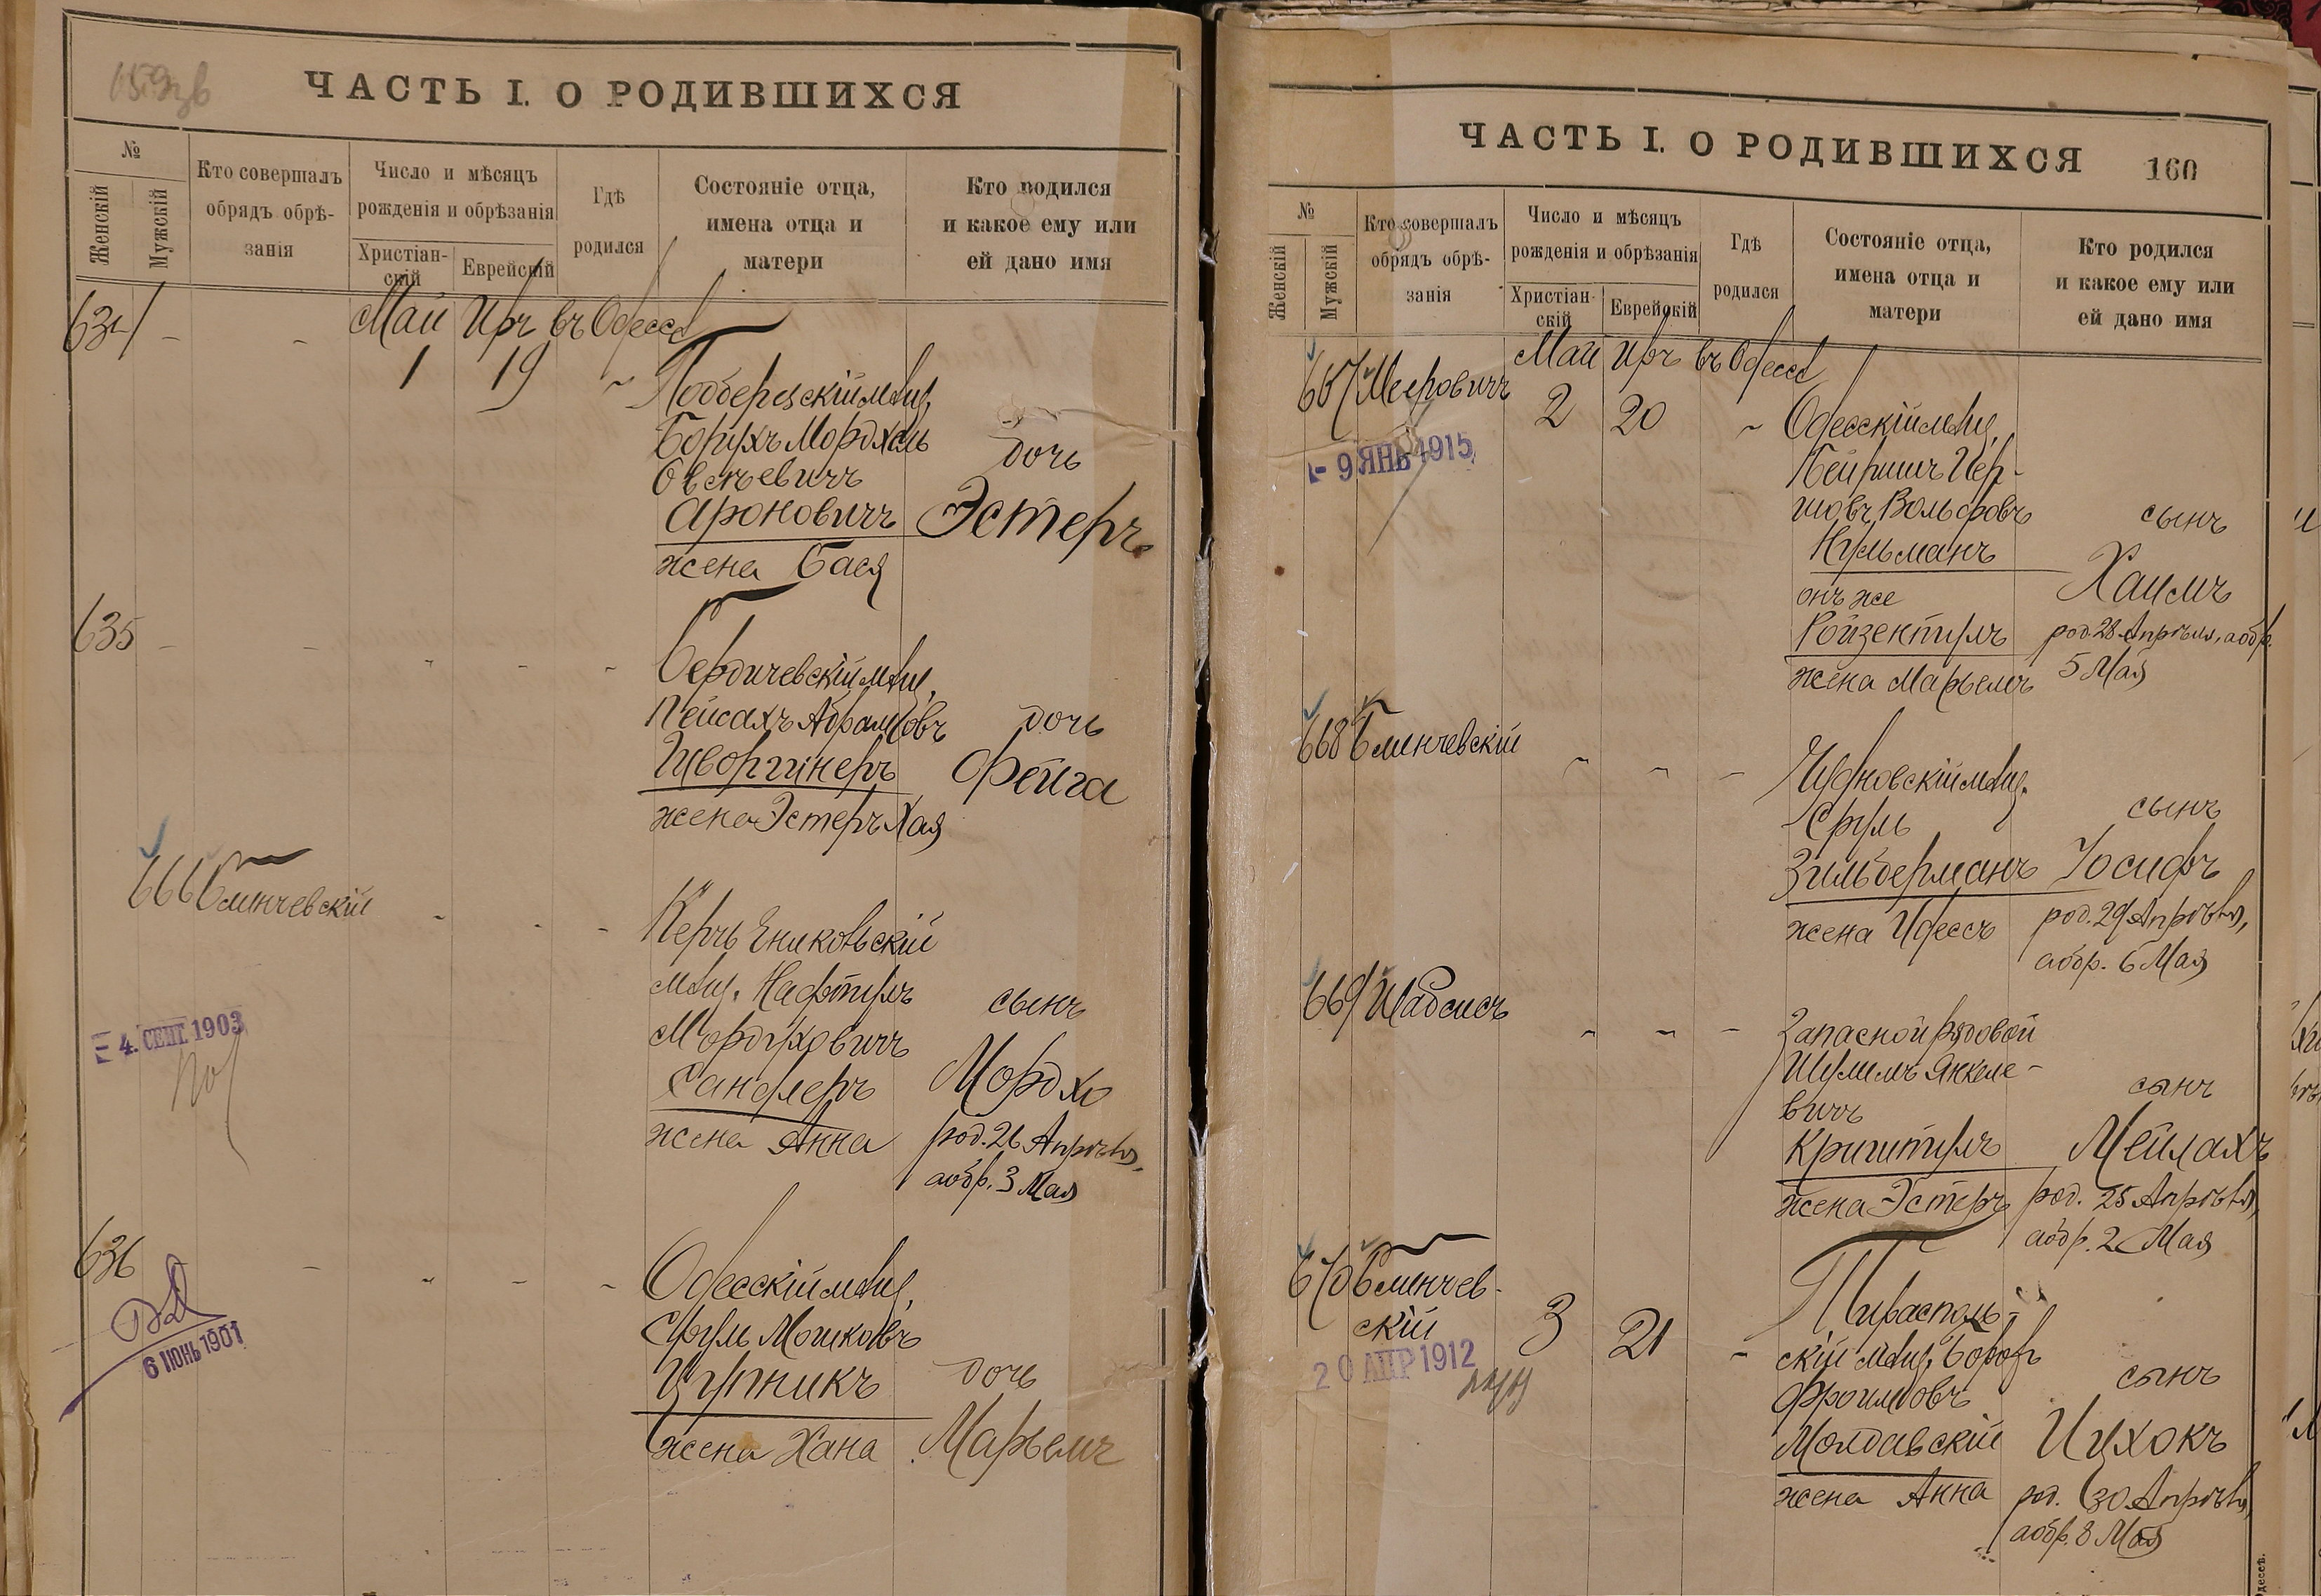 ЧАСТЬ I. О РОДИВШИХСЯ
№
Женскій
Мужскій
Кто совершалъ
обрядъ обрѣ-
занія
Число и мѣсяцъ
рожденія и обрѣзанія
Христіан-
скій
Еврейскій
Гдѣ
родился
Состояніе отца,
имена отца и
матери
Кто родился
и какое ему или
ей дано имя
634 - - Май Иръ въ Одессѣ
1 19 ~ Подберезскій мѣщ.
Борухъ Мордхель
Овсѣевичъ
Ароновичъ
жена Бася
дочь
Эстеръ
635 - - - - - Бердичевскій мѣщ.
Пейсахъ Абрамовъ
Шворгинеръ
жена Эстеръ Хая
дочь
Фейга
666 Блинчевскій - - - Керчь Ениковьскій
мѣщ. Нафтулъ
Мордуховичъ
Сандлеръ
жена Анна
сынъ
Мордхо
род. 26 Апрѣля,
а обр. 3 Мая
4. СЕНТ. 1903
636 - - - - Одесскій мѣщ.
Сруль Мошковъ
Цупникъ
жена Хана
дочь
Марьемъ
6 ІЮНЬ 1901
ЧАСТЬ I. О РОДИВШИХСЯ 160
№
Женскій
Мужскій
Кто совершалъ
обрядъ обрѣ-
занія
Число и мѣсяцъ
рожденія и обрѣзанія
Христіан-
скій
Еврейскій
Гдѣ
родился
Состояніе отца,
имена отца и
матери
Кто родился
и какое ему или
ей дано имя
667 Мееровичъ Май Иръ въ Одессѣ
2 20 ~ Одесскій мѣщ.
Бейришъ Гер-
шовъ Вольфовъ
Нульманъ
онъ же
Ройзентулъ
жена Марьемъ
сынъ
Хаимъ
род. 28 Апрѣля, а обр.
5 Мая
- 9 ЯНВ 1915
668 Блинчевскій - - - Чудновскій мѣщ.
Сруль
Зильберманъ
жена Идессъ
сынъ
Іосифъ
род. 29 Апрѣля,
а обр. 6 Мая
669 Шабсисъ - - - Запасной рядовой
Шулимъ Янкеле-
вичъ
Криштулъ
жена Эстеръ
сынъ
Мейлахъ
род. 25 Апрѣля,
а обр. 2 Мая
670 Блинчев-
скій
3 21 - Тирасполь-
скій мѣщ.
Фроимовъ
Молдавскій
жена Анна
сынъ
Ицхокъ
род. 30 Апрѣля,
а обр. 8 Мая
20 АПР 1912